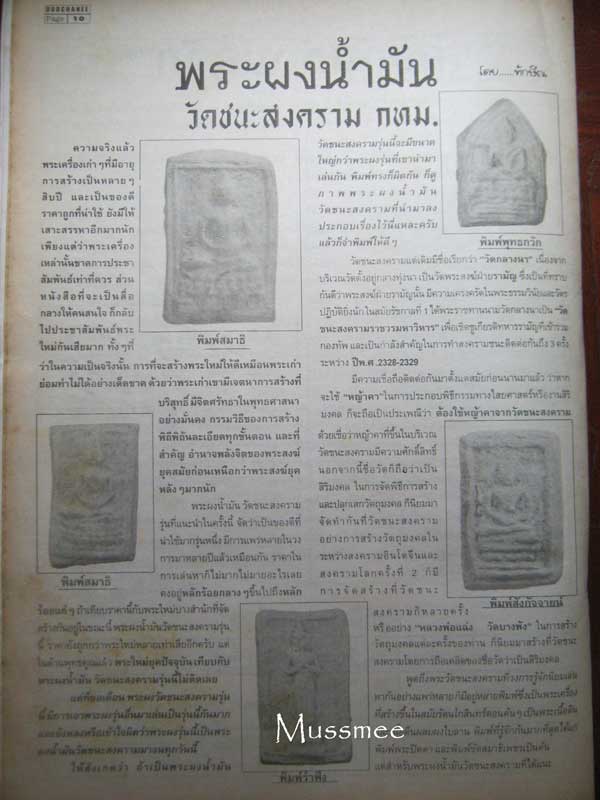 DUOCHANEE
Page 10
พระผงน้ำมัน
วัดชนะสงคราม กทม.
ความจริงแล้ว
พระเครื่องเก่าๆที่มีอายุ
การสร้างเป็นหลายๆ
สิบปี และเป็นของดี
ราคาถูกที่น่าใช้ ยังมีให้
เสาะสรรหาอีกมากนัก
เพียงแต่ว่าพระเครื่อง
เหล่านั้นขาดการประชา
สัมพันธ์เท่าที่ควร ส่วน
หนังสือที่จะเป็นสื่อ
กลางให้คนสนใจ ก็กลับ
ไปประชาสัมพันธ์พระ
ใหม่กันเสียมาก ทั้งๆที่
พิมพ์สมาธิ
ว่าในความเป็นจริงนั้น การที่จะสร้างพระใหม่ให้ดีเหมือนพระเก่า
ย่อมทำไม่ได้อย่างเด็ดขาด ด้วยว่าพระเก่าเขามีเจตนาการสร้างที่
บริสุทธิ์ มีจิตศรัทธาในพุทธศาสนา
อย่างมั่นคง กรรมวิธีของการสร้าง
พิถีพิถันละเอียดทุกขั้นตอน และที่
สำคัญ อำนาจพลังจิตของพระสงฆ์
ยุคสมัยก่อนเหนือกว่าพระสงฆ์ยุค
หลังๆมากนัก
พระผงน้ำมัน วัดชนะสงคราม
รุ่นที่แนะนำในครั้งนี้ จัดว่าเป็นของดีที่
น่าใช้มากรุ่นหนึ่ง มีการแพร่หลายในวง
การมาหลายปีแล้วเหมือนกัน ราคาใน
การเล่นหาก็ไม่มากไม่มายอะไรเลย
คงอยู่หลักร้อยกลางๆขึ้นไปถึงหลัก
พิมพ์สมาธิ
ร้อยแก่ๆ ถ้าเทียบราคานี้กับพระใหม่บางสำนักที่จัด
สร้างกันอยู่ในขณะนี้ พระผงน้ำมันวัดชนะสงครามรุ่น
นี้ ราคายังถูกกว่าพระใหม่หลายเท่าเสียอีกครับ แต่
ในด้านพุทธคุณแล้ว พระใหม่ยุคปัจจุบัน เทียบกับ
พระผงน้ำมัน วัดชนะสงครามรุ่นนี้ไม่ติดเลย
ให้สังเกตว่า ถ้าเป็นพระผงน้ำมัน
พิมพ์รำพึง
วัดชนะสงครามรุ่นนี้จะมีขนาด
ใหญ่กว่าพระผงรุ่นที่เขานำมา
เล่นกัน พิมพ์ทรงก็ผิดกัน ก็ดู
ภาพพระผงน้ำมัน
วัดชนะสงครามที่นำมาลง
ประกอบเรื่องไว้นี่แหละครับ
แล้วก็จำพิมพ์ให้ดีๆ
พิมพ์พุทธกวัก
วัดชนะสงครามแต่เดิมมีชื่อเรียกว่า "วัดกลางนา" เนื่องจาก
บริเวณวัดตั้งอยู่กลางทุ่งนา เป็นวัดพระสงฆ์ฝ่ายรามัญ ซึ่งเป็นที่ทราบ
กันดีว่าพระสงฆ์ฝ่ายรามัญนั้น มีความเคร่งครัดในพระธรรมวินัยและวัตร
ปฏิบัติยิ่งนัก ในสมัยรัชกาลที่ 1 ได้พระราชทานนามวัดกลางนาเป็น "วัด
ชนะสงครามราชวรมหาวิหาร" เพื่อเชิดชูเกียรติทหารรามัญที่เข้าร่วม
กองทัพ และเป็นกำลังสำคัญในการทำสงครามชนะติดต่อกันถึง 3 ครั้ง
ระหว่าง ปีพ.ศ.2328-2329
มีความเชื่อถือติดต่อกันมาตั้งแต่สมัยก่อนนานมาแล้ว ว่าหาก
จะใช้ "หญ้าคา" ในการประกอบพิธีกรรมทางไสยศาสตร์หรืองานสิริ
มงคล ก็จะถือเป็นประเพณีว่า ต้องใช้หญ้าคาจากวัดชนะสงคราม
ด้วยเชื่อว่าหญ้าคาที่ขึ้นในบริเวณ
วัดชนะสงครามมีความศักดิ์สิทธิ์
นอกจากนี้ชื่อวัดก็ถือว่าเป็น
สิริมงคล ในการจัดพิธีการสร้าง
และปลุกเสกวัตถุมงคล ก็นิยมมา
จัดทำกันที่วัดชนะสงคราม
อย่างการสร้างวัตถุมงคลใน
ระหว่างสงครามอินโดจีนและ
สงครามโลกครั้งที่ 2 ก็มี
การจัดสร้างที่วัดชนะ
พิมพ์สังกัจจายน์
สงครามก็หลายครั้ง
หรืออย่าง "หลวงพ่อแฉ่ง วัดบางพัง" ในการสร้าง
วัตถุมงคลแต่ละครั้งของท่าน ก็นิยมมาสร้างที่วัดชนะ
สงครามโดยการถือเคล็ดของชื่อวัดว่าเป็นสิริมงคล
พิมพ์พระปิดตา และพิมพ์ขัดสมาธิเพชรเป็นต้น
แต่สำหรับพระผงน้ำมันวัดชนะสงครามที่ได้แนะ
Mussmee